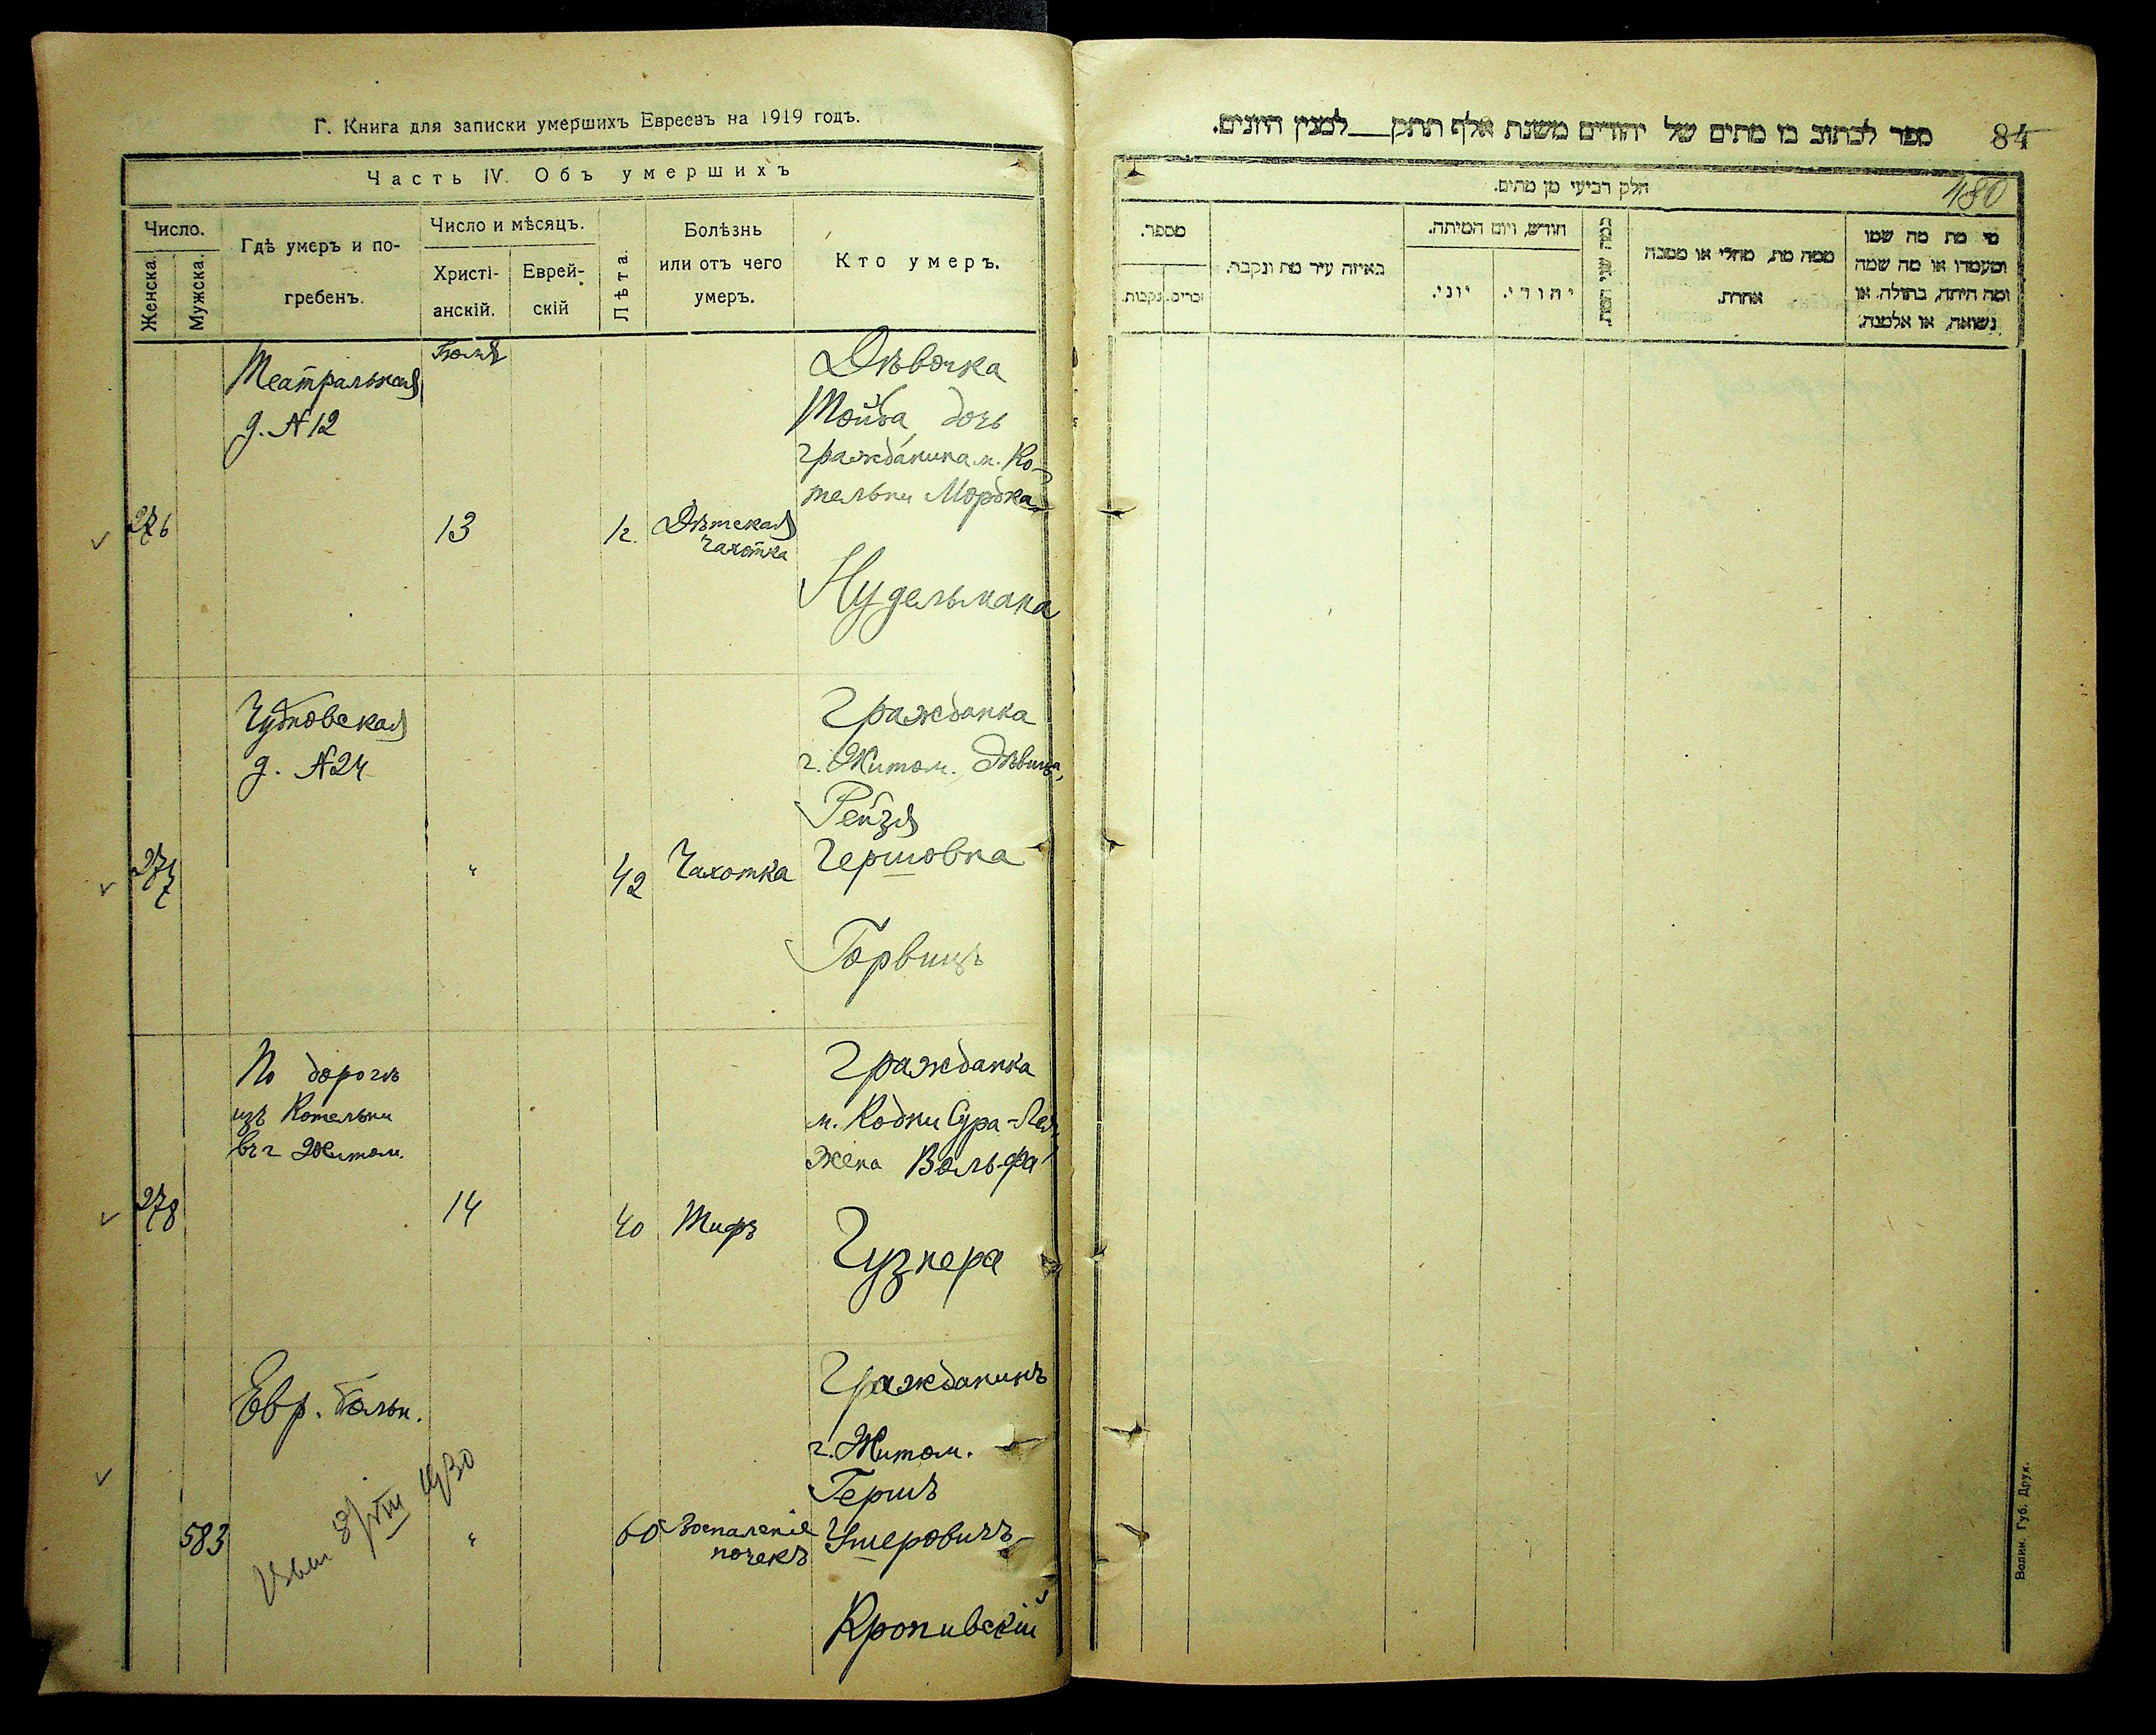 Г. Книга для записки умершихъ Евреевъ на 1919 годъ.
Часть IV. Объ умершихъ
Число.
Женска.
Мужска.
Гдѣ умеръ и по-
гребенъ.
Число и мѣсяцъ.
Христі-
анскій.
Еврей-
скій
Лѣта.
Болѣзнь
или отъ чего
умеръ.
Кто умеръ.
276
Театральная
д. N 12
Іюля
13
1 г.
Дѣтская
чахотка
Дѣвочка
Тойба дочь
гражданина м. Ко-
тельни Мордка
Нудельмана
277
Чудновская
д. N 24
"
42
Чахотка
Гражданка
г. Житом. дѣвица,
Рейзя
Гершовна
Горвицъ
278
По дорогѣ
изъ Котельни
въ г Житом.
14
40
Тифъ
Гражданка
м. Кодни Сура-Лея,
жена Вольфа
Гузнера
583
Евр. больн.
8/VIII 1930
"
60
Воспаленіе
почекъ
Гражданинъ
г. Житом.
Гершъ
Ушеровичъ
Кропивскій
84
ספר לכתוב בו מתים של יהודים משנת אלף תתק למנין היונים.
480
חלק רביעי מן מתים.
מי מת מה שמו
ומעמדו או מה שמה
ומה היתה, בתולה, או
נשואה, או אלמנה.
ממה מת, מחלי או מסבה
אחרת.
חודש, ויום המיתה.
יהודי.
יוני.
באיזה עיר מת ונקבר.
מספר.
זכרים.
נקבות.
Волин. Губ. Друк.